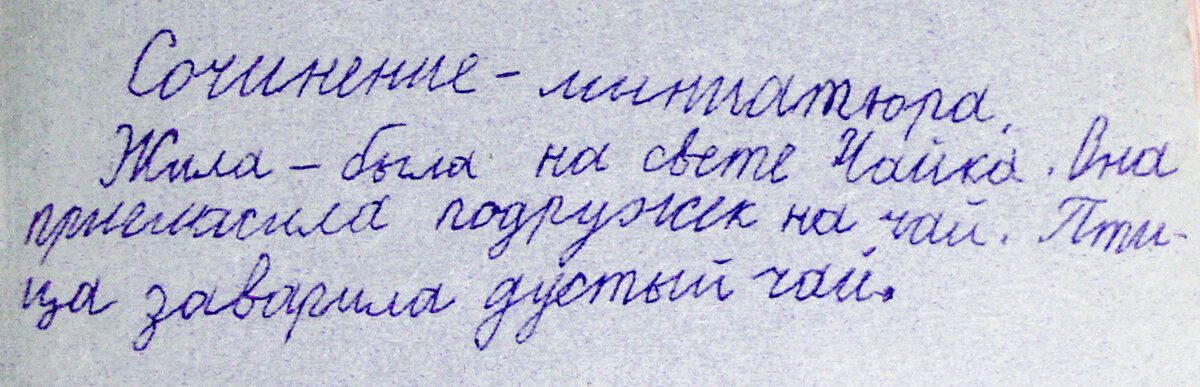 Сочинение - миниатюра.
Жила - была на свете Чайка. Она
пригласила подружек на чай. Пти-
ца заварила дустый чай.